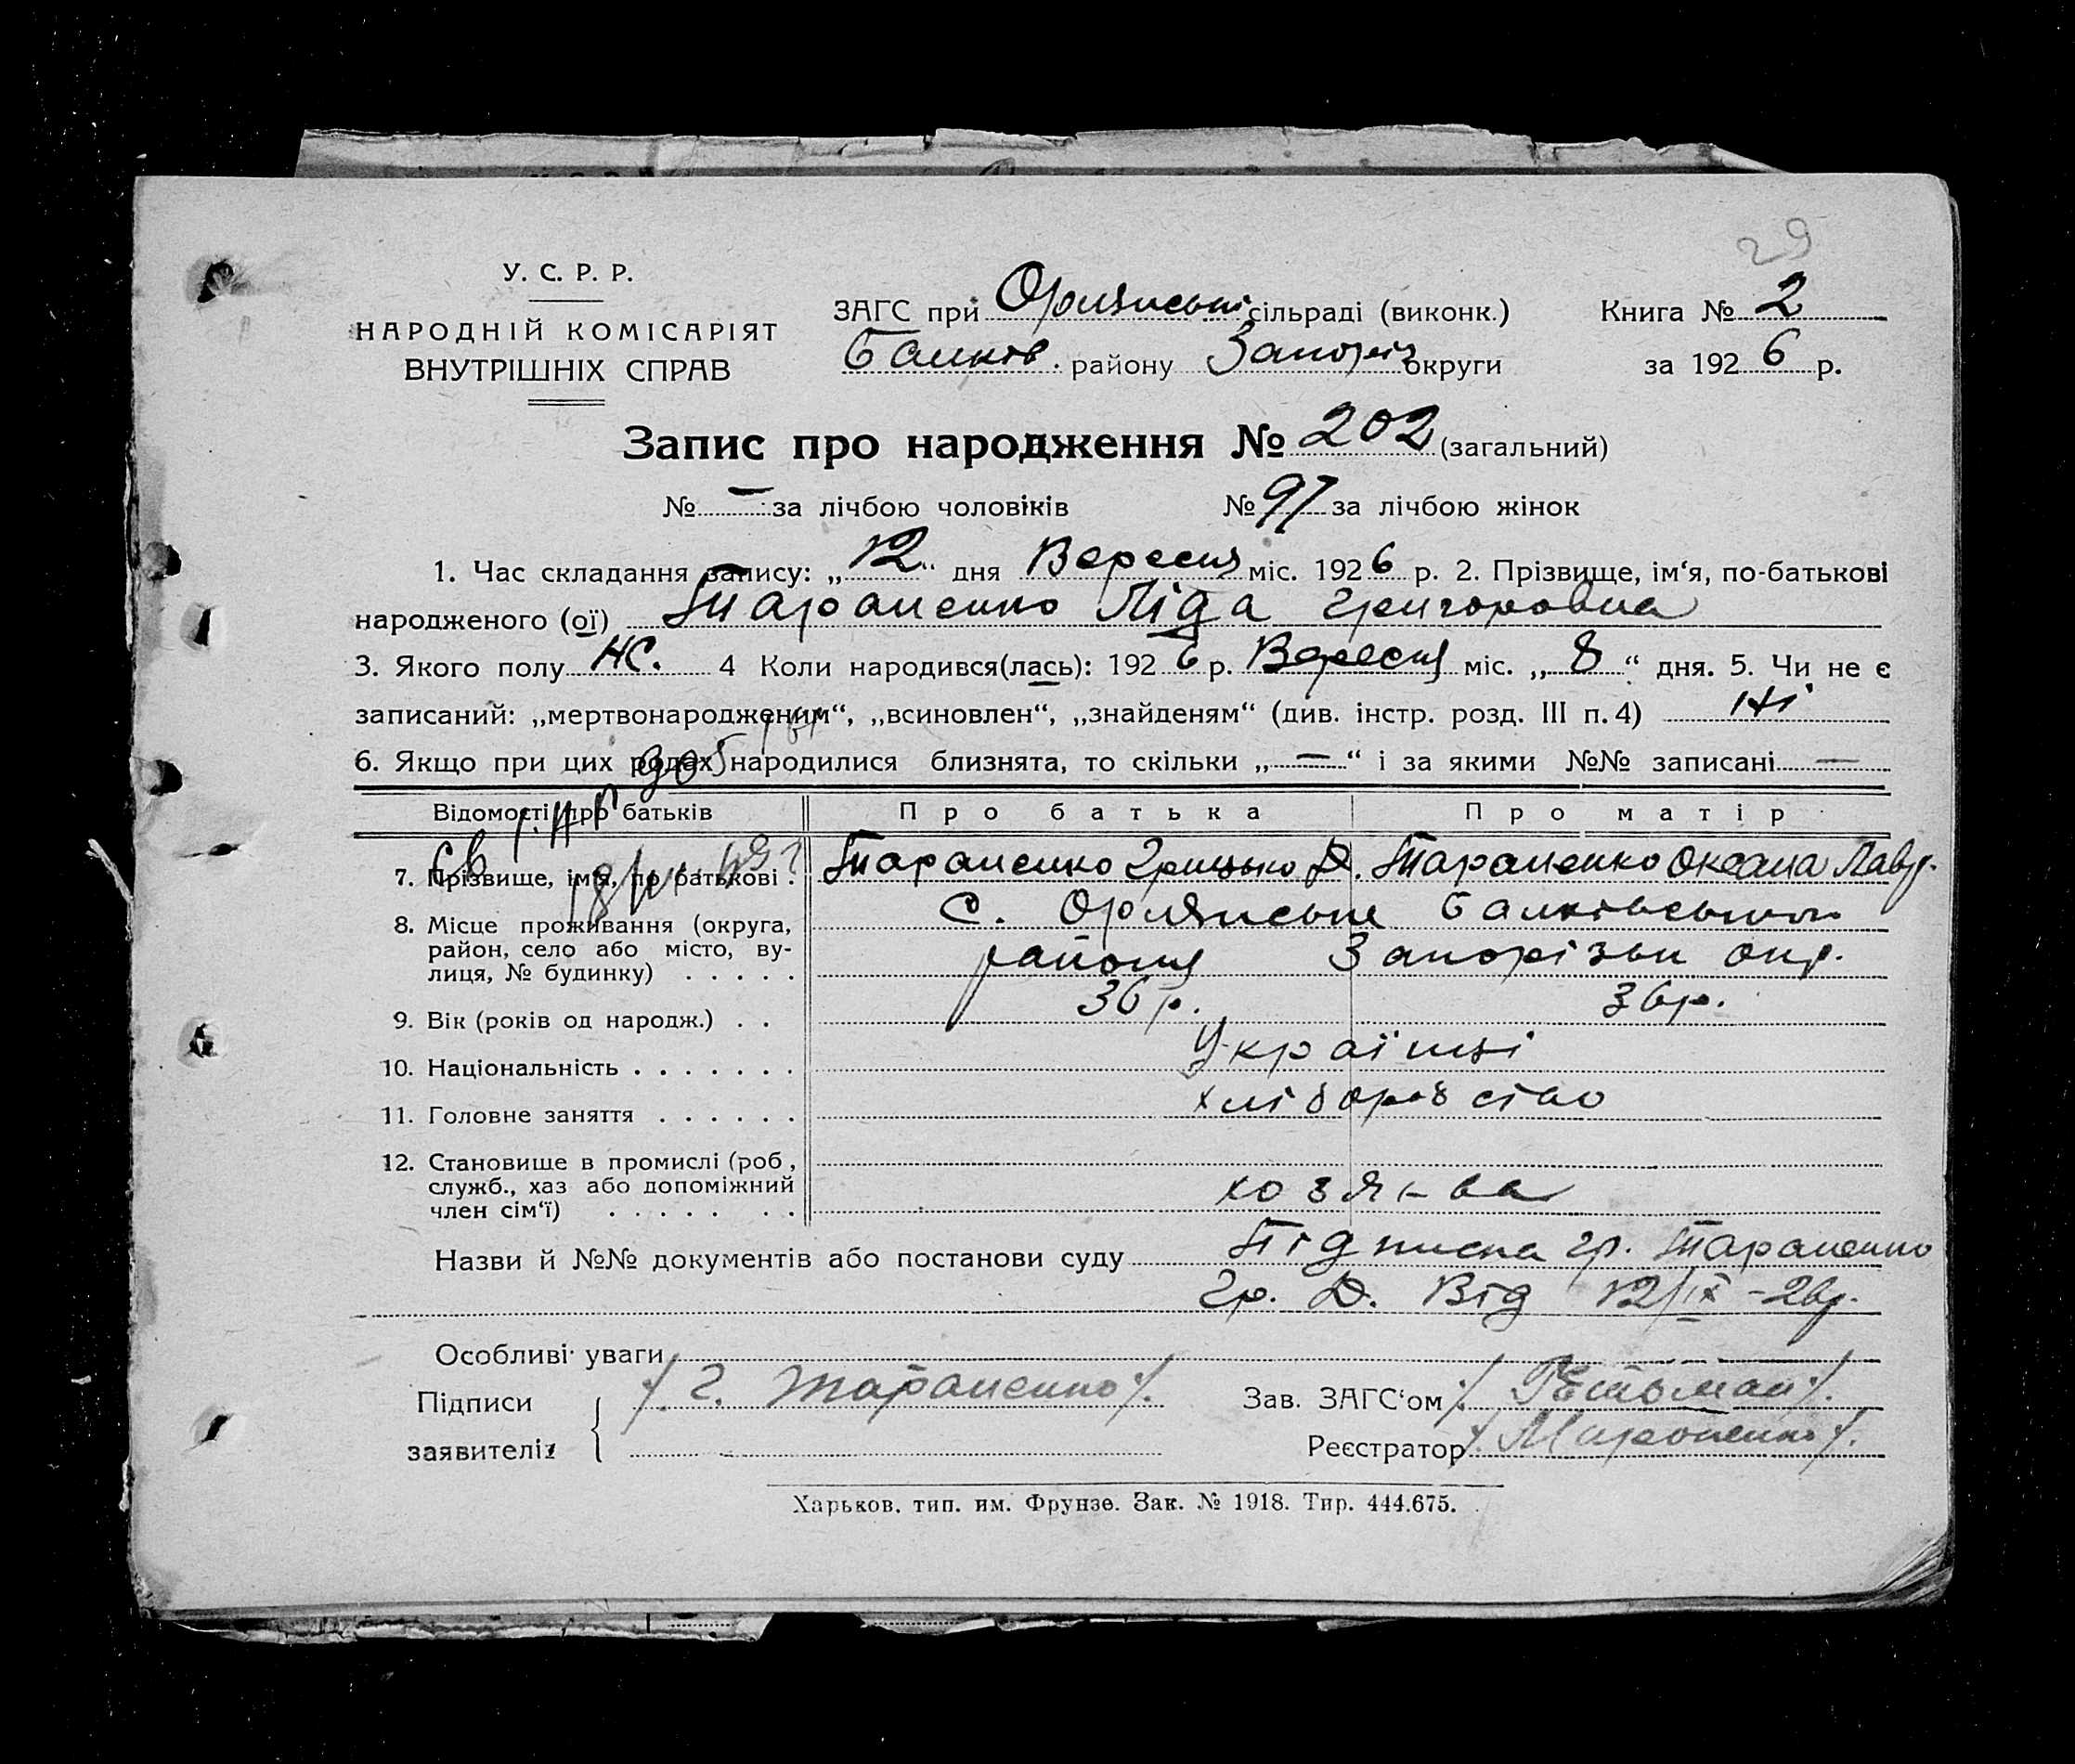 29
У. С. Р. Р.
НАРОДНІЙ КОМІСАРІЯТ
ВНУТРІШНІХ СПРАВ
ЗАГС при Орлянські сільраді (виконк.)
Балків. району Запоріз округи
Книга № 2
за 1926 р.
Запис про народження № 202 (загальний)
№ — за лічбою чоловіків № 97 за лічбою жінок
1. Час складання запису: „12“ дня Вересня міс. 1926 р. 2. Прізвище, ім‘я, по-батькові
народженого (ої) Тараненко Ліда Григоровна
3. Якого полу Ж. 4 Коли народився(лась): 1926 р. Вересня міс. „8“ дня. 5. Чи не є
записаний: „мертвонародженим“, „всиновлен“, „знайденям“ (див. інстр. розд. III п. 4) Ні
6. Якщо при цих родах народилися близнята, то скільки „—“ і за якими №№ записані —
Відомості про батьків Про батька Про матір
7. Прізвище, імя, по батькові . Тараненко Грицько Д. Тараненко Оксана Лавр.
8. Місце проживання (округа, район, село або місто, ву-
лиця, № будинку) . . . . .
С. Орлянське Балківського
района Запорізьк окр.
9. Вік (років од народж.) . . 36 р. 36 р.
10. Національність . . . . . . . Українці
11. Головне заняття . . . . . . хліборобство
12. Становище в промислі (роб, служб., хаз або допоміжний
член сім‘ї) . . . . . . .
хозя-ва
Назви й №№ документів або постанови суду Підписка гр. Тараненко
Гр. Д. Від 12/IX-26р.
Особливі уваги
Підписи
заявителів
/. Г. Тараненко /.
Зав. ЗАГС‘ом
Реєстратор
Харьков. тип. им. Фрунзе. Зак. № 1918. Тир. 444.675.